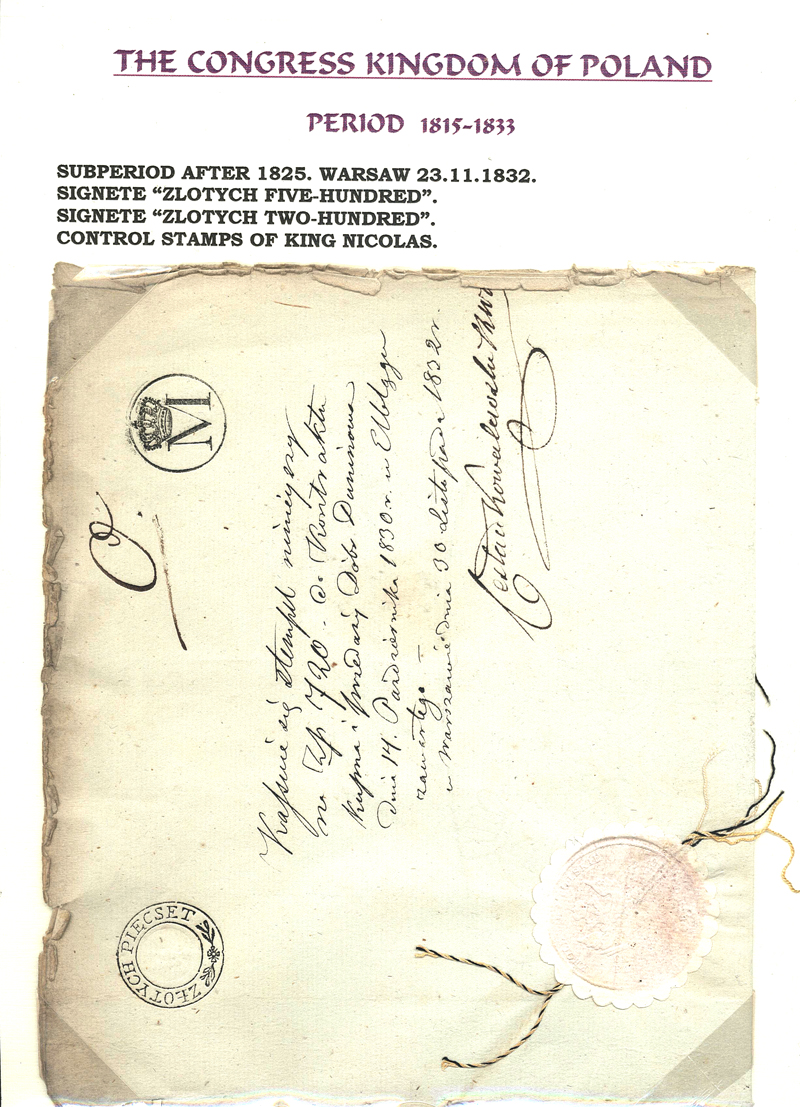 THE CONGRESS KINGDOM OF POLAND
PERIOD 1815-1833
SUBPERIOD AFTER 1825. WARSAW 23.11.1832.
SIGNETE “ZLOTYCH FIVE-HUNDRED”.
SIGNETE “ZLOTYCH TWO-HUNDRED”.
CONTROL STAMPS OF KING NICOLAS.
M
ZŁOTYCH PIĘCSET
Kassuie się stempel ninieyszy
na Zp 720 - d. Kontraktu
kupna i przedaży Dóbr Duninowa
dnia 14. Października 1830 r. w Elblągu
zawartego -
w Warszawie dnia 30 Listopada 1832 r.
Kowalewski